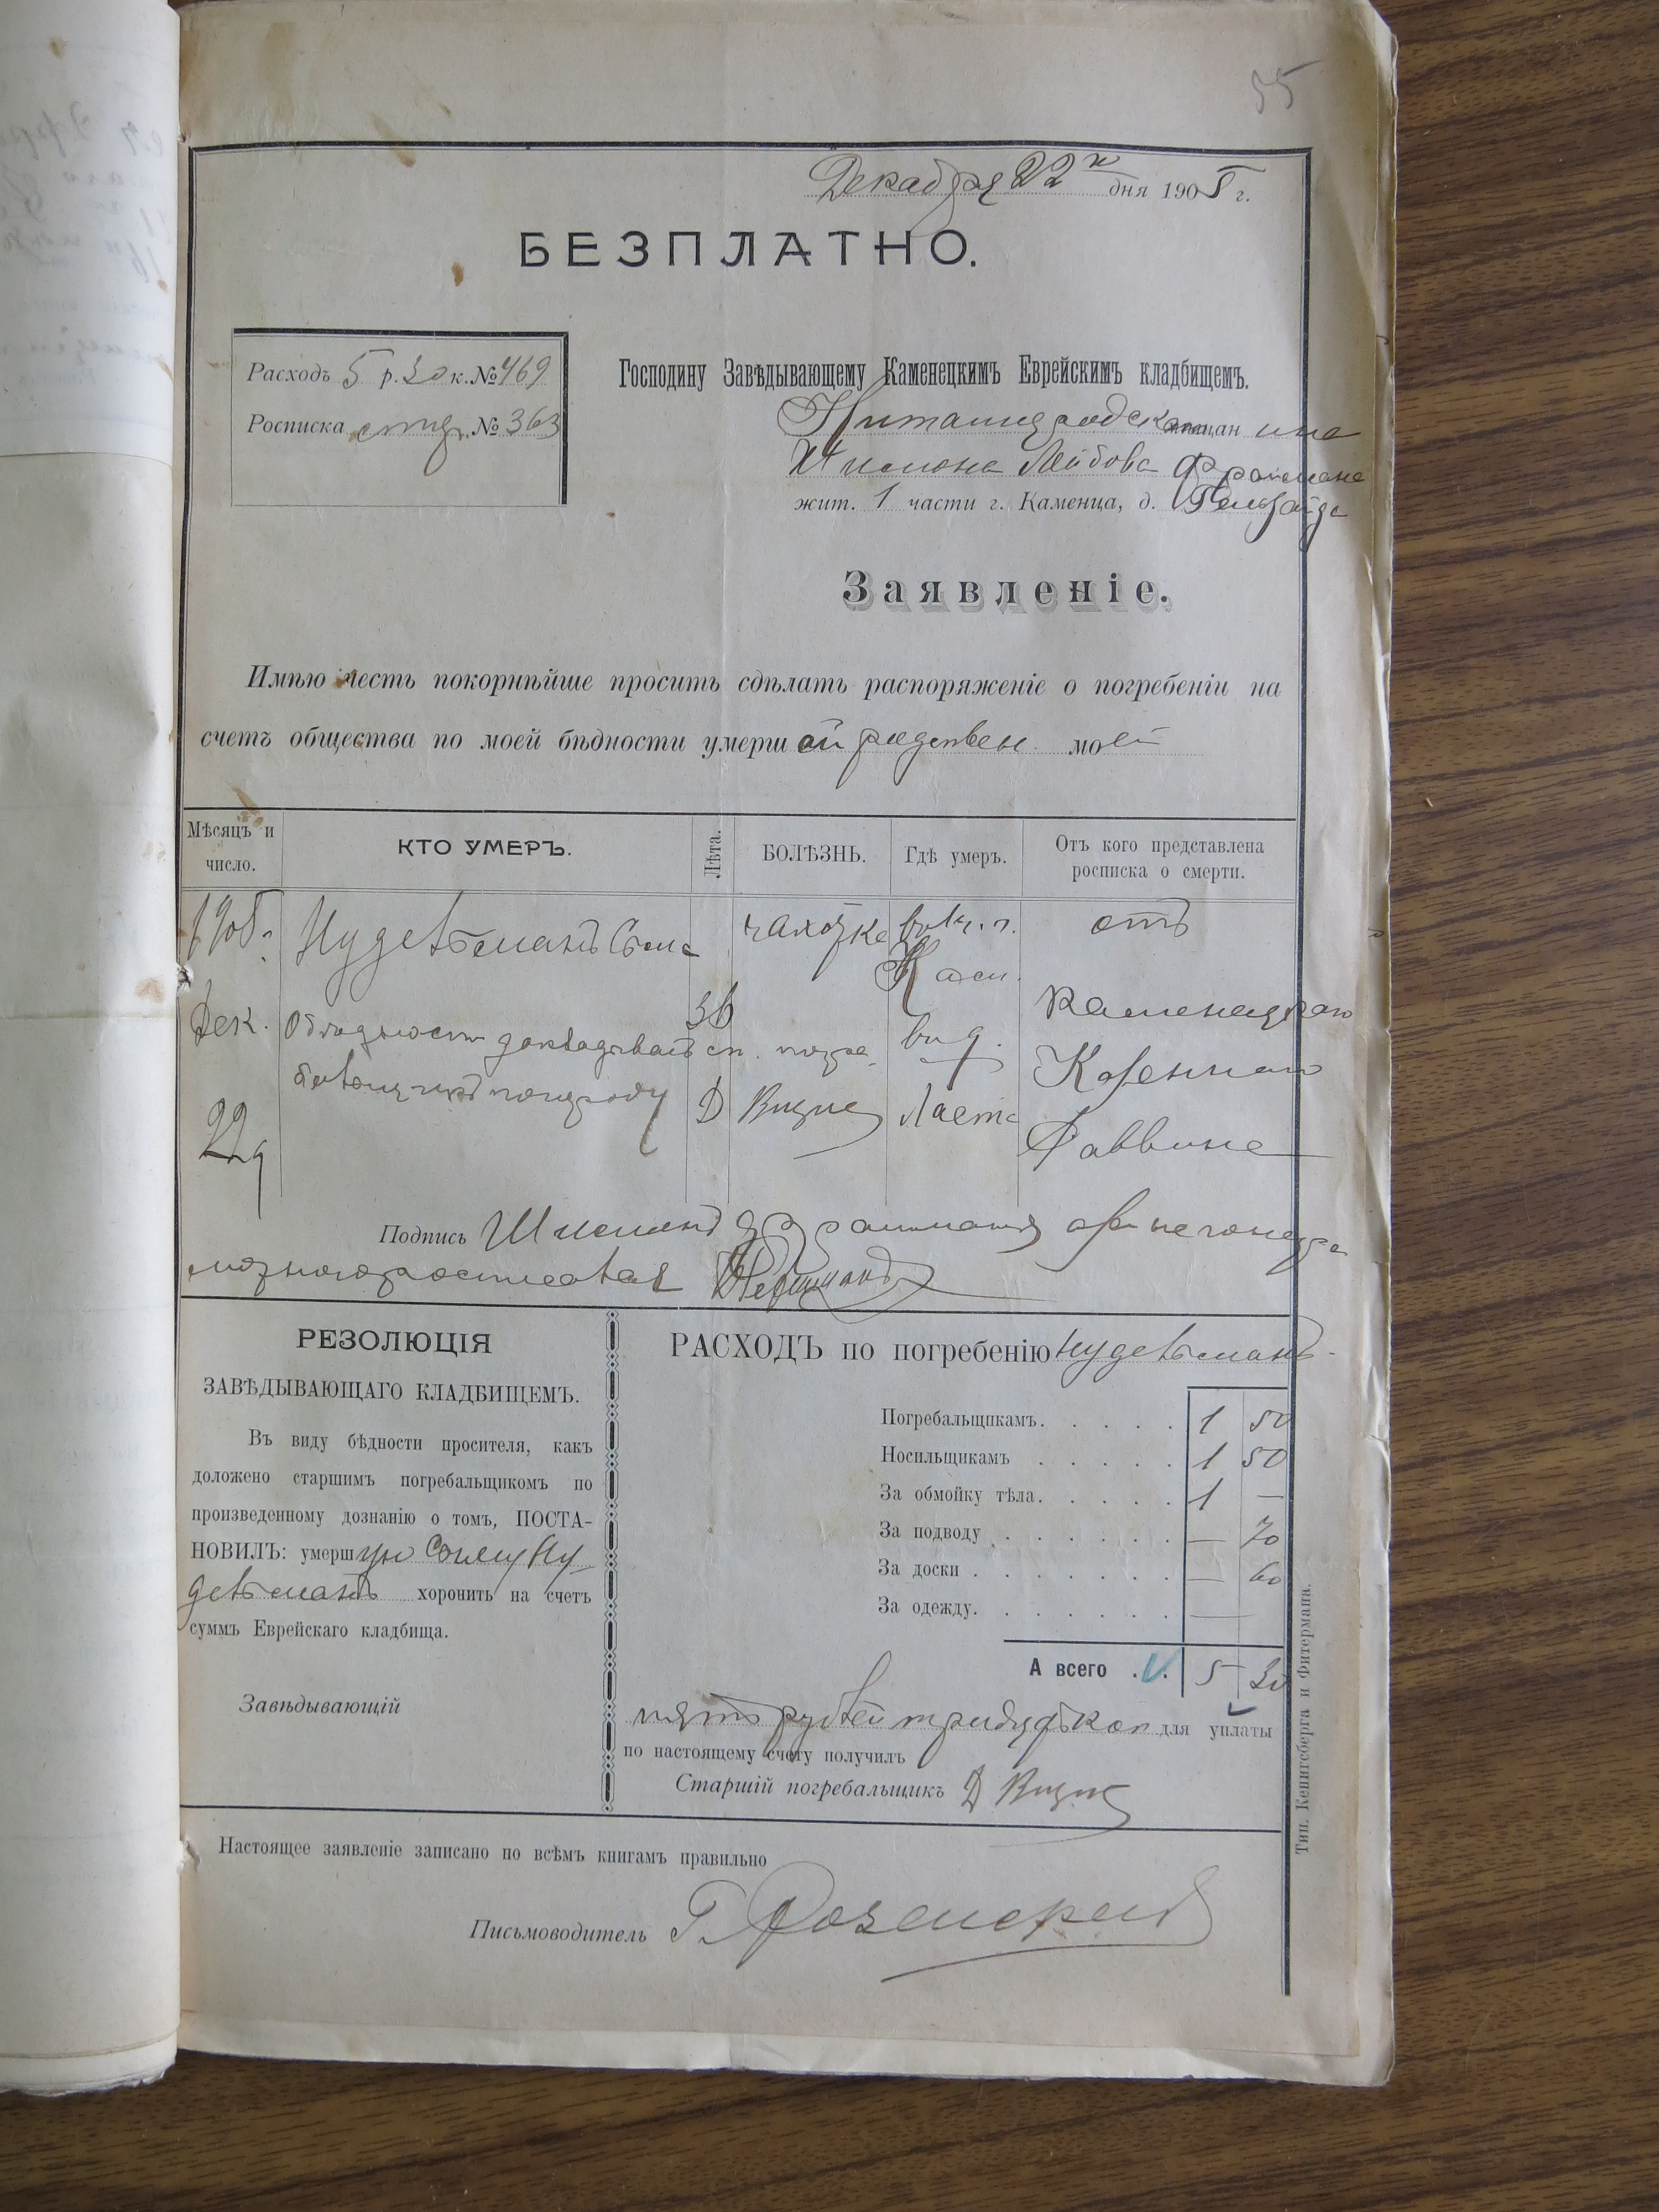 55
Декабря 22 дня 1905 г.
БЕЗПЛАТНО.
Расходъ 5 р. 30 к. № 469
Росписка № 363
Господину Завѣдывающему Каменецкимъ Еврейскимъ кладбищемъ.
Китайгородск мѣщан ина
Шимона Лейбова Фраймана
жит. 1 части г. Каменца, д.
Заявленіе.
Имѣю честь покорнѣйше просить сдѣлать распоряженіе о погребеніи на
счетъ общества по моей бѣдности умерш ей родствен. мо ей
Мѣсяцъ и число.
КТО УМЕРЪ.
Лѣта.
БОЛѢЗНЬ.
Гдѣ умеръ.
Отъ кого представлена росписка о смерти.
1905 г.
Дек.
22 д
Нудельманъ Сима
О бѣдности докладывалъ ст. погре-
бальщикъ
36
чахотке
Д Визне
Кам.
отъ
Каменецкаго
Казеннаго
Раввина
Подпись Шимонъ Фрайманъ а за негоне гра
мотного росписался
РЕЗОЛЮЦІЯ
ЗАВѢДЫВАЮЩАГО КЛАДБИЩЕМЪ.
Въ виду бѣдности просителя, какъ
доложено старшимъ погребальщикомъ по
произведенному дознанію о томъ, ПОСТА-
НОВИЛЪ: умерш ую Симу Ну
дельманъ хоронить на счетъ
суммъ Еврейскаго кладбища.
Завѣдывающій
РАСХОДЪ по погребенію Нудельманъ
Погребальщикамъ. 1 50
Носильщикамъ 1 50
За обмойку тѣла. 1 —
За подводу — 70
За доски — 60
За одежду. —
А всего 5 30
пять рублей тридцать коп для уплаты
по настоящему счету получилъ
Старшій погребальщикъ Д Визне
Тип. Кенигсберга и Фитермана.
Настоящее заявленіе записано по всѣмъ книгамъ правильно
Письмоводитель Г.